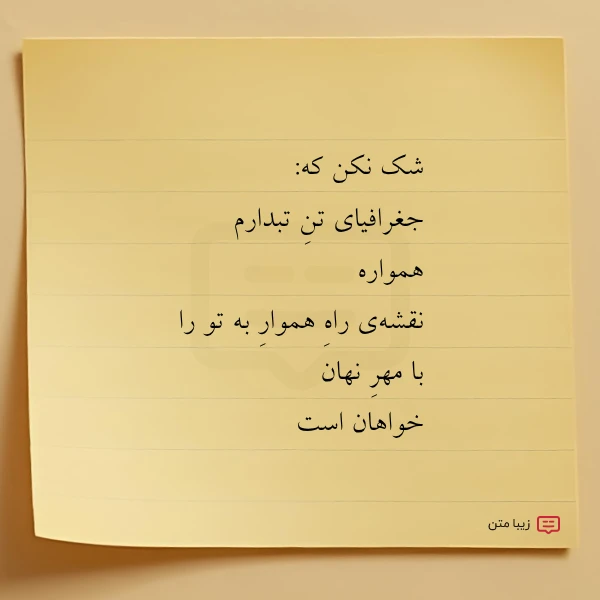 شک نکن که:
جغرافیای تنِ تبدارم
همواره
نقشه‌ی راهِ هموارِ به تو را
با مهرِ نهان
خواهان است
زیبا متن